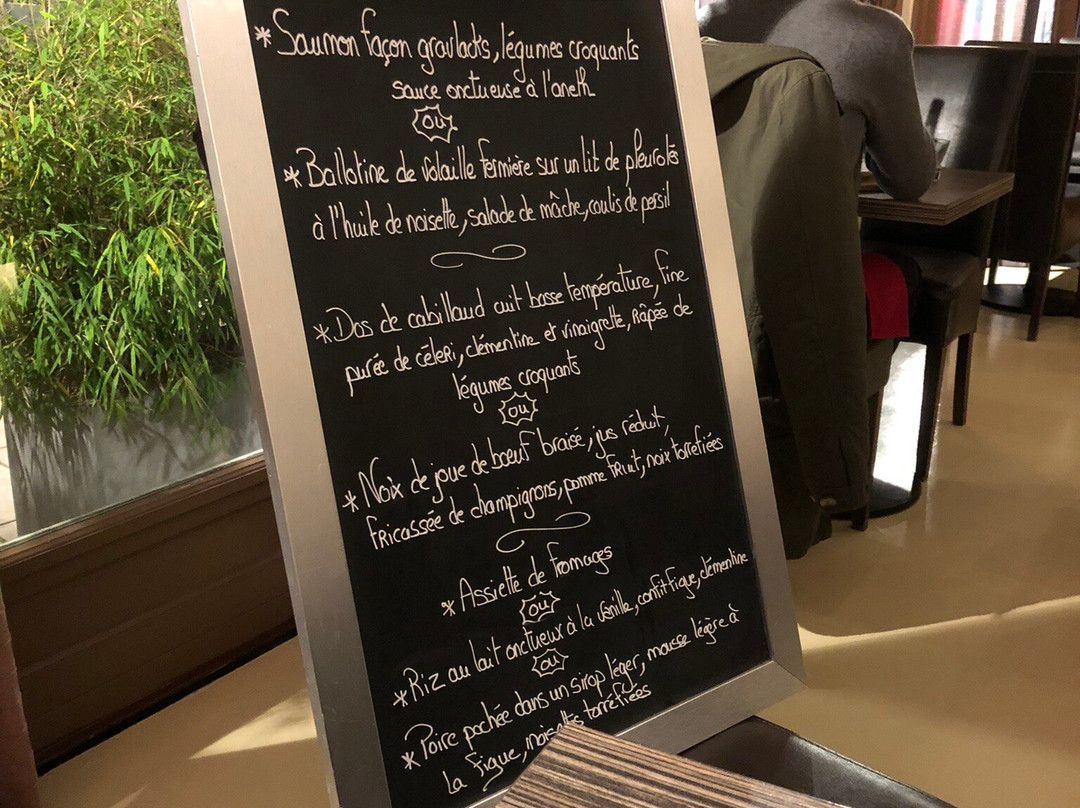 * Saumon façon gravlacks, légumes croquants
sauce onctueuse à l'aneth
ou
* Ballotine de volaille fermière sur un lit de pleurotes
à l'huile de noisette, salade de mâche, coulis de persil
* Dos de cabillaud cuit basse température, fine
purée de céleri, clémentine et vinaigrette, Râpée de
légumes croquants
ou
* Noix de joue de boeuf braisé, jus réduit,
fricassée de champignons, pomme fruit, noix torrefiées
* Assiette de fromages
ou
* Riz au lait onctueux à la vanille, confit figue, clémentine
ou
* Poire pochée dans un sirop léger, mousse légère à
la figue, noisettes torréfiées